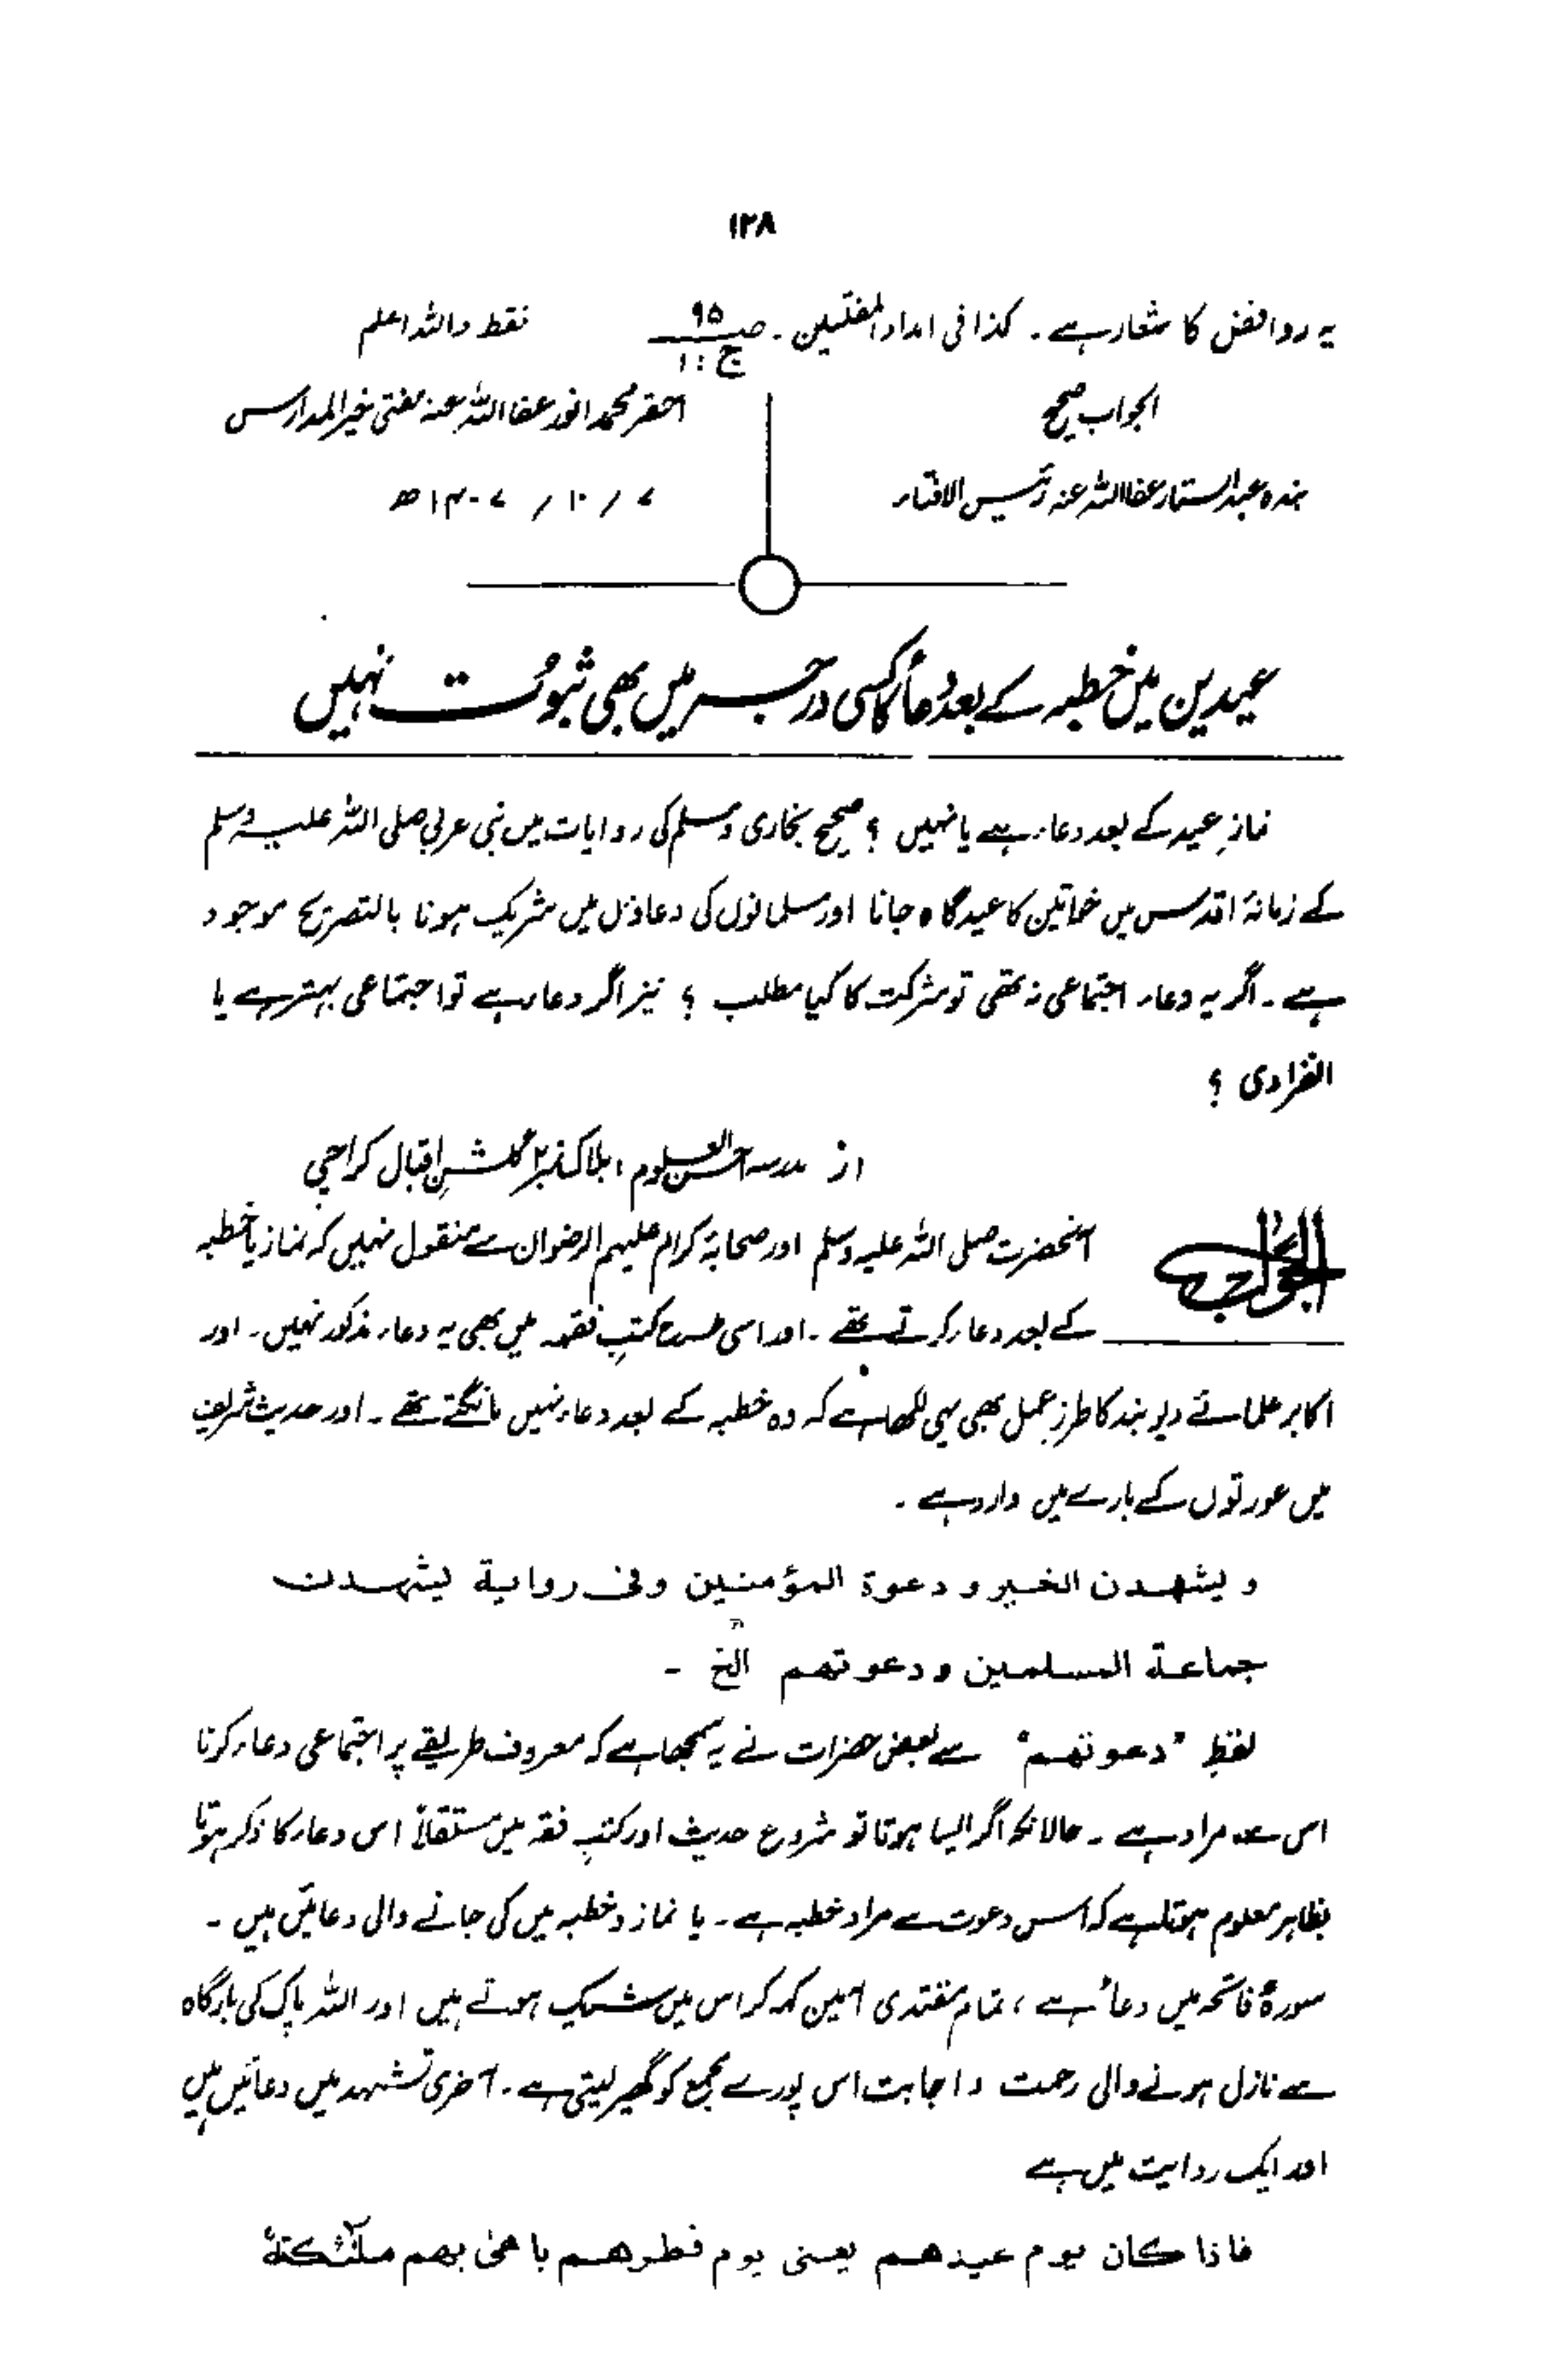 ۱۲۸
یہ روافض کا شعار ہے ۔ کذا فی امداد المفتیین ۔ ص ۹۵ ج : ۱ فقط واللہ اعلم
الجواب صحیح
احقر محمد انور عفا اللہ عنہ مفتی خیر المدارس
بندہ عبدالستار عفا اللہ عنہ رئیس الافتاء
۷ / ۱۰ / ۱۴۰۷ھ
عیدین میں خطبہ کے بعد دُعاء کا کسی درجہ میں بھی ثبوُت نہیں
نمازِ عید کے بعد دعاء ہے یا نہیں ؟ صحیح بخاری و مسلم کی روایات میں نبی عربی صلی اللہ علیہ وسلم
کے زمانۂ اقدس میں خواتین کا عیدگاہ جانا اور مسلمانوں کی دعاؤں میں شریک ہونا بالتصریح موجود
ہے ۔ اگر یہ دعاء اجتماعی نہ تھی تو شرکت کا کیا مطلب ؟ نیز اگر دعاء ہے تو اجتماعی بہتر ہے یا
انفرادی ؟
از مدرسہ احسن العلوم ، بلاک نمبر ۲ گلشنِ اقبال کراچی
الجواب
آنحضرت صلی اللہ علیہ وسلم اور صحابۂ کرام علیہم الرضوان سے منقول نہیں کہ نماز یا خطبہ
کے بعد دعاء کرتے تھے ۔ اور اسی طرح کتبِ فقہ میں بھی یہ دعاء مذکور نہیں ۔ اور
اکابر علمائے دیوبند کا طرزِ عمل بھی یہی لکھا ہے کہ وہ خطبہ کے بعد دعاء نہیں مانگتے تھے ۔ اور حدیث شریف
میں عورتوں کے بارے میں وارد ہے ۔
و یشهدن الخیر و دعوة المؤمنین وفی روایة لیشهدن
جماعة المسلمین و دعوتهم الخ ۔
لفظِ "دعوتهم" سے بعض حضرات نے یہ سمجھا ہے کہ معروف طریقے پر اجتماعی دعاء کرنا
اس سے مراد ہے ۔ حالانکہ اگر ایسا ہوتا تو شروع حدیث اور کتبِ فقہ میں مستقلاً اس دعاء کا ذکر ہوتا
بظاہر معلوم ہوتا ہے کہ اس دعوت سے مراد خطبہ ہے ۔ یا نماز و خطبہ میں کی جانے والی دعائیں ہیں ۔
سورۂ فاتحہ میں دعاء ہے ، تمام مقتدی آمین کہہ کر اس میں شریک ہوتے ہیں اور اللہ پاک کی بارگاہ
سے نازل ہونے والی رحمت و اجابت اس پورے مجمع کو گھیر لیتی ہے ۔ آخری تشہد میں دعائیں ہیں
اور ایک روایت میں ہے
فاذا كان یوم عیدهم یعنی یوم فطرهم باهیٰ بهم ملٰئکتهٗ